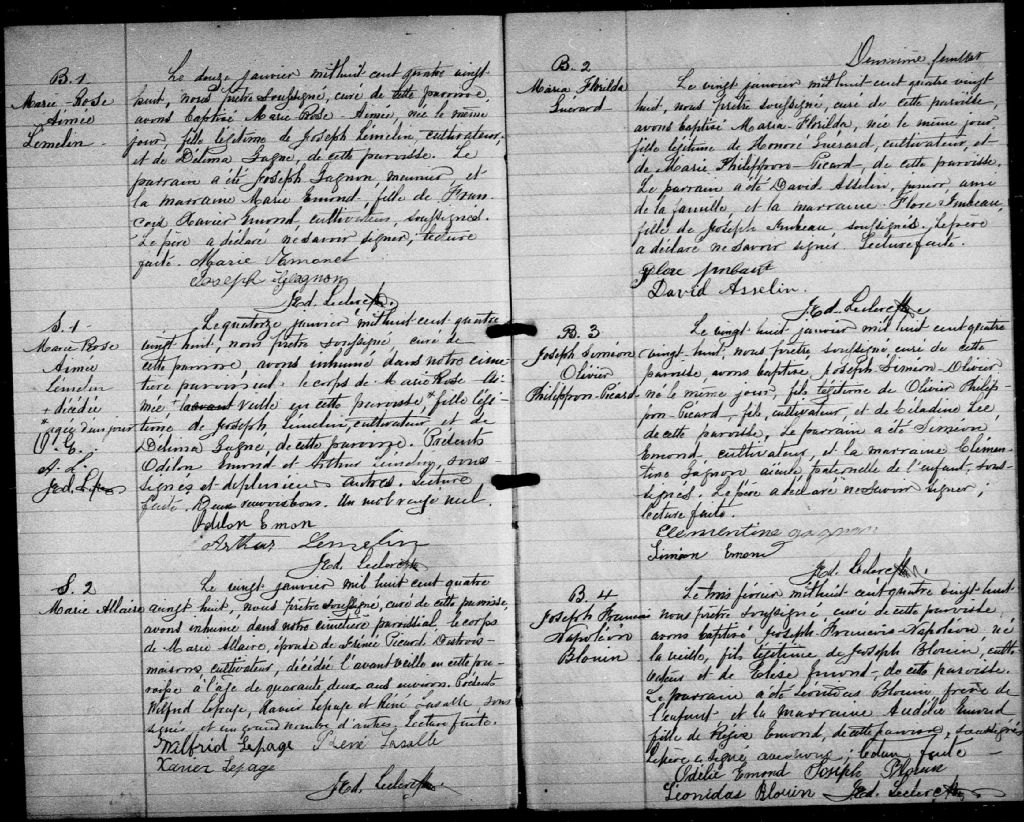 B. 1
Marie-Rose
Aimée
Lemelin
Le douze janvier mil huit cent quatre vingt
huit, nous prêtre soussigné, curé de cette paroisse,
avons baptisé Marie Rose-Aimée, née le même
jour, fille légitime de Joseph Lemelin, cultivateur,
et de Délima Gagné, de cette paroisse. Le
parrain a été Joseph Gagnon, meunier et
la marraine Marie Emond, fille de Fran-
çois Xavier Emond, cultivateur, soussignés.
Le père a déclaré ne savoir signer, lecture
faite. Marie Emond
Joseph Gagnon
Jod. Leclerc Ptre.
S. 1
Marie Rose
Aimée
Lemelin
+ décédée
* agée d'un jour
O. E.
A. L.
Le quatorze janvier mil huit cent quatre
vingt huit, nous prêtre soussigné, curé de
cette paroisse, avons inhumé dans notre cime-
tière paroissial le corps de Marie Rose-Ai-
mée + veille en cette paroisse,* fille légi-
time de Joseph Lemelin, cultivateur, et de
Délima Gagné, de cette paroisse. Présents
Odilon Emond et Arthur Lemelin, sous-
signés et de plusieurs autres. Lecture
faite. Deux renvois bons. Un mot rayé nul.
Odilon Emon
Arthur Lemelin
Jod. Leclerc Ptre
S. 2
Marie Allaire
Le vingt janvier mil huit cent quatre
vingt huit, nous prêtre soussigné, curé de cette paroisse,
avons inhumé dans notre cimetière paroissial le corps
de Marie Allaire, épouse de Picard Destrois-
maisons, cultivateur, décédée l'avant veille en cette pa-
roisse à l'âge de quarante deux ans environ. Présents
Wilfrid Lepage, Xavier Lepage et René Lasalle sous
signés et un grand nombre d'autres. Lecture faite.
Wilfrid Lepage René Lasalle
Xavier Lepage
Jod. Leclerc Ptre
feuillet
B. 2
Maria Florilda
Guérard
Le vingt janvier mil huit cent quatre vingt
huit, nous prêtre soussigné, curé de cette paroisse,
avons baptisé Maria-Florilda, née le même jour
fille légitime de Honoré Guérard, cultivateur, et
de Marie Philippon-Picard, de cette paroisse.
Le parrain a été David Asselin, junior, ami
de la famille et la marraine Flore Imbeau,
fille de Joseph Imbeau, soussignés. Le père
a déclaré ne savoir signer. Lecture faite.
Flore Imbeau
David Asselin.
Jod. Leclerc Ptre
B. 3
Joseph Siméon
Olivier
Philippon-Picard
Le vingt huit janvier mil huit cent quatre
vingt huit, nous prêtre soussigné curé de cette
paroisse avons baptisé, Joseph-Siméon-Olivier
né le même jour, fils légitime de Olivier Philip-
pon-Picard, fils, cultivateur, et de Céladine Lee,
de cette paroisse. Le parrain a été Siméon
Emond, cultivateur, et la marraine Clémen-
tine Gagnon aïeule paternelle de l'enfant, sous-
signés. Le père a déclaré ne savoir signer;
lecture faite.
Clementine gagnon
Siméon Emond
Jod. Leclerc Ptre.
B. 4
Joseph François
Napoléon
Blouin
Le trois février mil huit cent quatre vingt huit
nous prêtre soussigné, curé de cette paroisse
avons baptisé, Joseph-François-Napoléon, né
la veille, fils légitime de Joseph Blouin, culti-
vateur et de Elise Emond, de cette paroisse.
Le parrain a été Léonidas Blouin frère de
l'enfant et la marraine Audélie Emond
fille de Régis Emond, de cette paroisse, soussignés
Le père a signé avec nous; lecture faite
Odélie Emond Joseph Blouin
Léonidas Blouin Jod. Leclerc Ptre